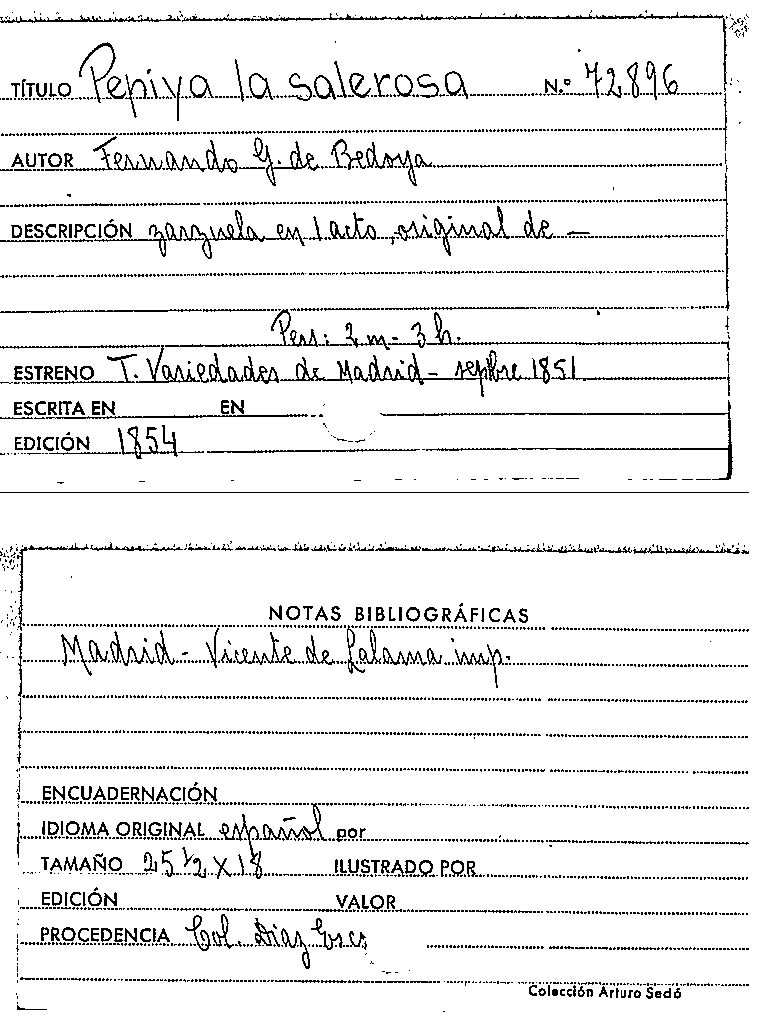 TÍTULO Pepiya la salerosa N.º 72896
AUTOR Fernando G. de Bedoya
DESCRIPCIÓN zarzuela en 1 acto, original de —
Pers: 2 m - 3 h.
ESTRENO T. Variedades de Madrid - sepbre 1851
ESCRITA EN EN
EDICIÓN 1854
NOTAS BIBLIOGRÁFICAS
Madrid - Vicente de Lalama imp.
ENCUADERNACIÓN
IDIOMA ORIGINAL español por
TAMAÑO 25 1/2 X 18 ILUSTRADO POR
EDICIÓN VALOR
PROCEDENCIA Col. Díaz
Colección Arturo Sedó